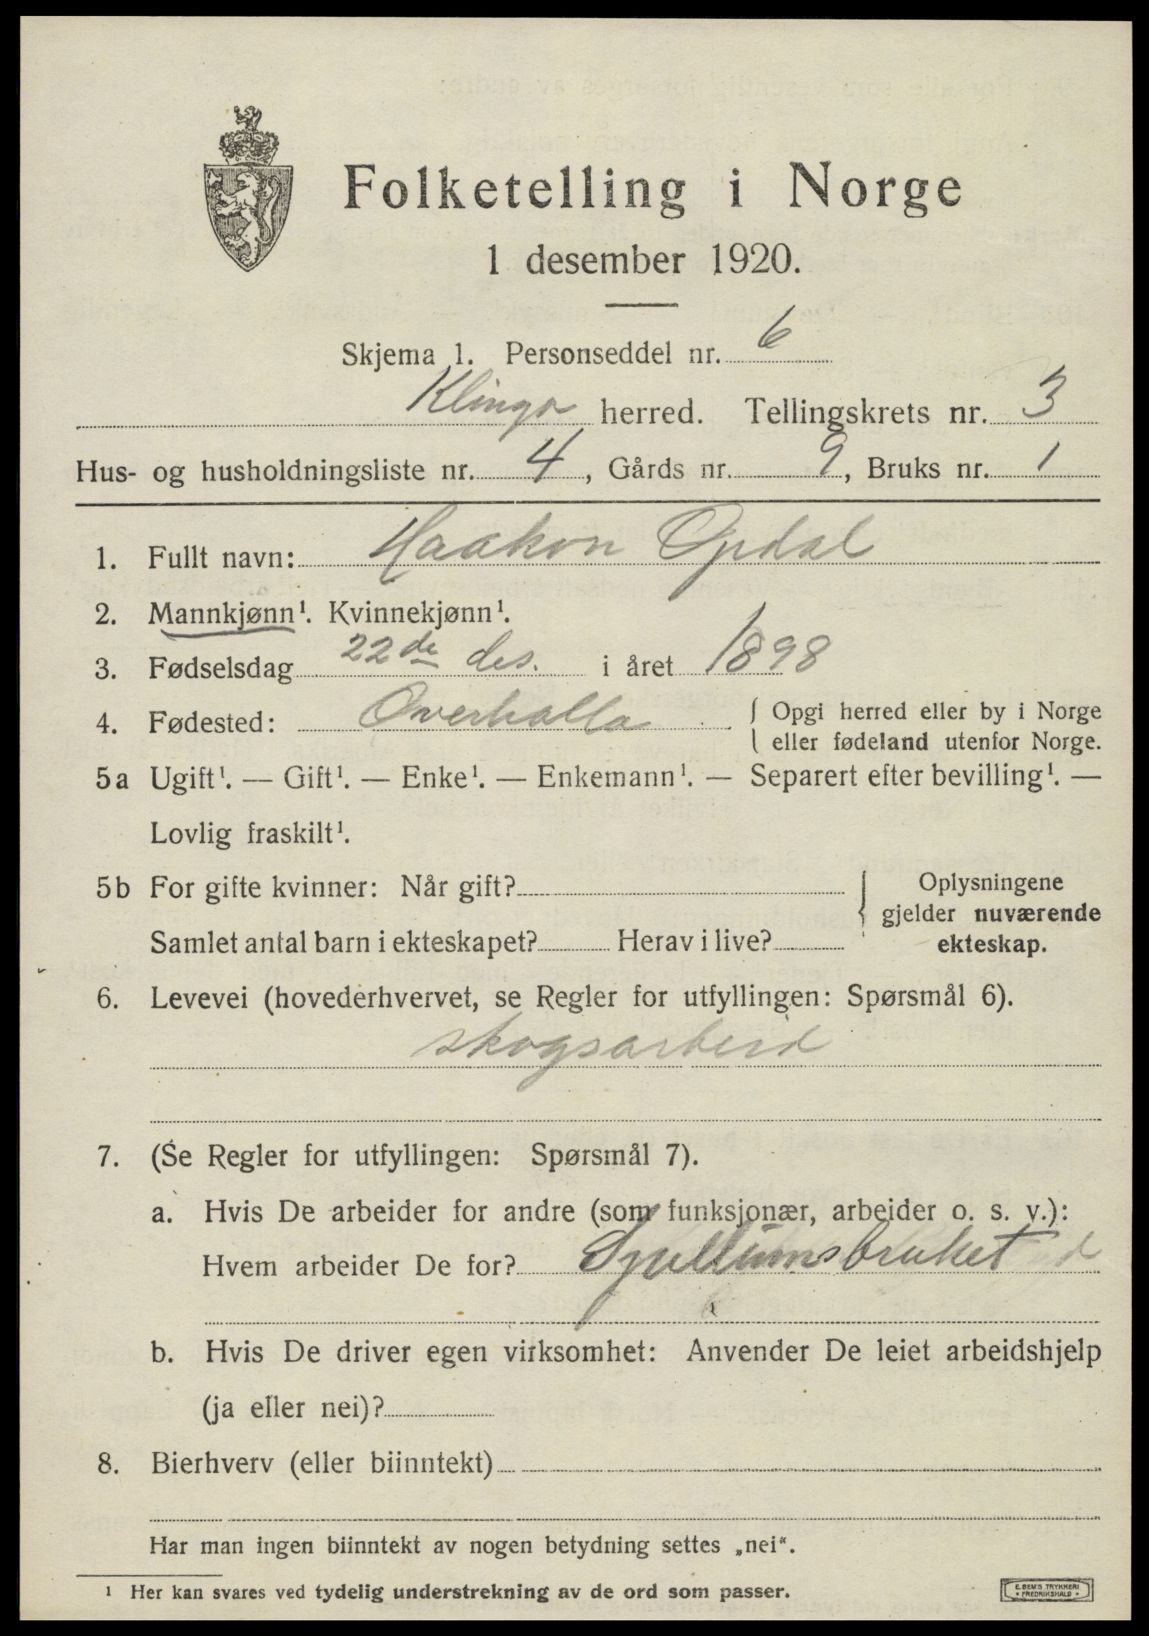 Folketelling i Norge
1 desember 1920.
Skjema 1. Personseddel nr. 6
Klinga herred. Tellingskrets nr. 3
Hus- og husholdningsliste nr. 4, Gårds nr. 9, Bruks nr. 1
1. Fullt navn: Haakon Opdal
2. Mannkjønn¹. Kvinnekjønn¹.
3. Fødselsdag 22de des. i året 1898
4. Fødested: Overhalla { Opgi herred eller by i Norge
eller fødeland utenfor Norge.
5a Ugift¹. — Gift¹. — Enke¹. — Enkemann¹. — Separert efter bevilling¹. —
Lovlig fraskilt¹.
5b For gifte kvinner: Når gift? { Oplysningene
gjelder nuværende
Samlet antal barn i ekteskapet? Herav i live? ekteskap.
6. Levevei (hovederhvervet, se Regler for utfyllingen: Spørsmål 6).
skogsarbeid
7. (Se Regler for utfyllingen: Spørsmål 7).
a. Hvis De arbeider for andre (som funksjonær, arbeider o. s. v.):
Hvem arbeider De for? Spillumsbruket
b. Hvis De driver egen virksomhet: Anvender De leiet arbeidshjelp
(ja eller nei)?
8. Bierhverv (eller biinntekt)
Har man ingen biinntekt av nogen betydning settes „nei“.
¹ Her kan svares ved tydelig understrekning av de ord som passer.
E. SEM'S TRYKKERI
• FREDRIKSHALD •